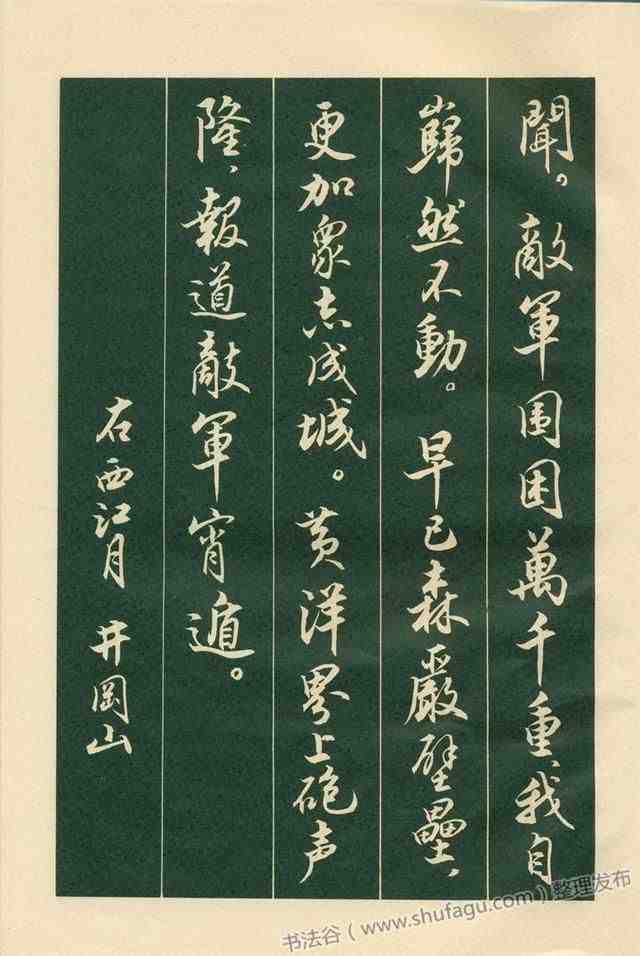 聞。敵軍围困萬千重、我自
巋然不動。早已森嚴壁壘、
更加眾志成城。黄洋界上砲声
隆、報道敵軍宵遁。
右西江月 井岡山
书法谷（www.shufagu.com）整理发布